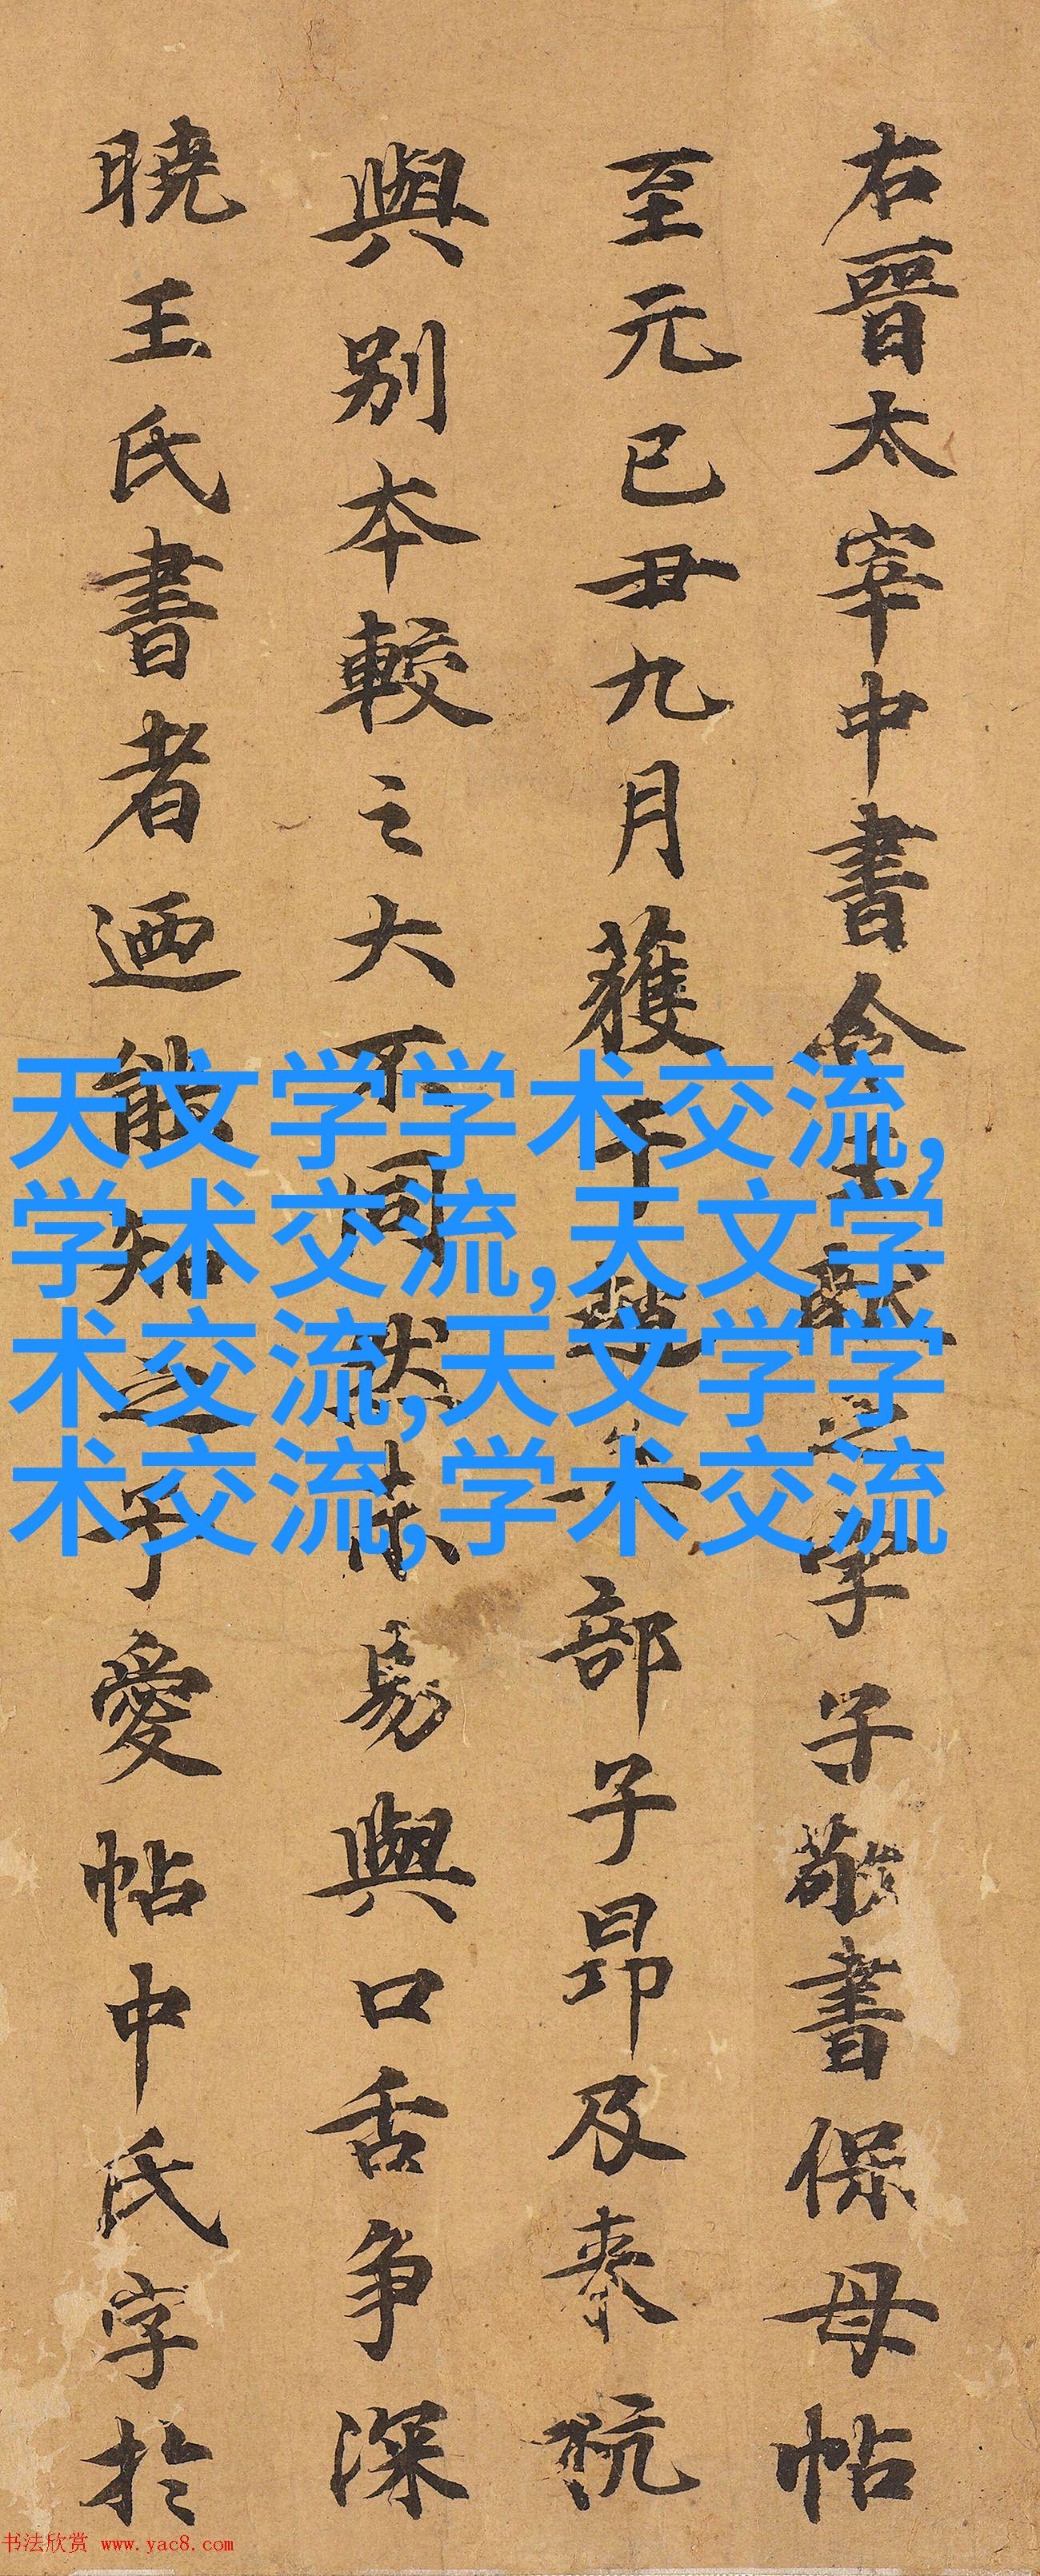 右晉太宰中書令王獻之字子敬書保母帖
至元已丑九月獲于趙部子昂及
與别本較之大不同易與口舌争深
曉王氏書者迺能知之予愛帖中氏字於
天文学学术交流,
学术交流,天文学
术交流,天文学学
术交流,学术交流
书法欣赏 www.yac8.com